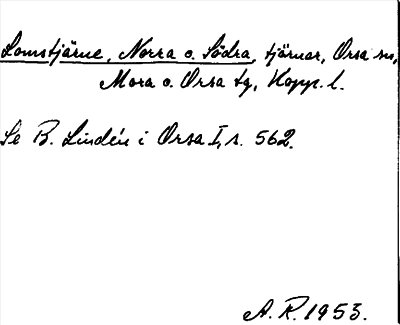 Lomstjärne, Norra o. Södra, tjärnar, Orsa sn,
Mora o. Orsa tg, Kopp. l.
Se B. Lindén i Orsa I, s. 562.
A. R. 1953.